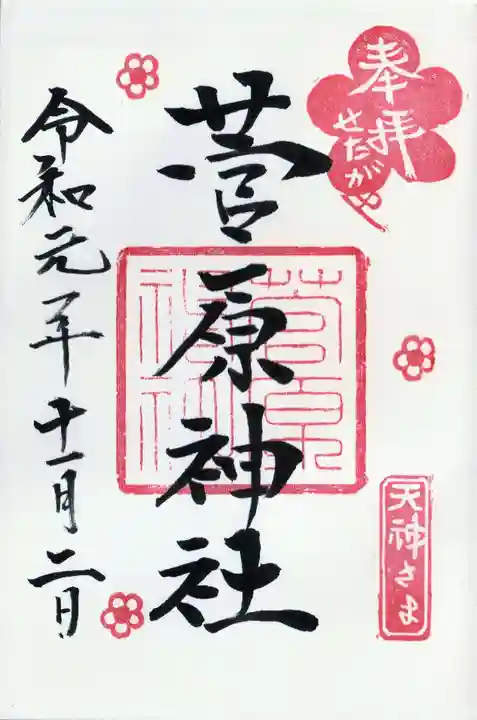 奉拝
せたがや
天神さま
菅原神社
菅原神社
令和元年十一月二日